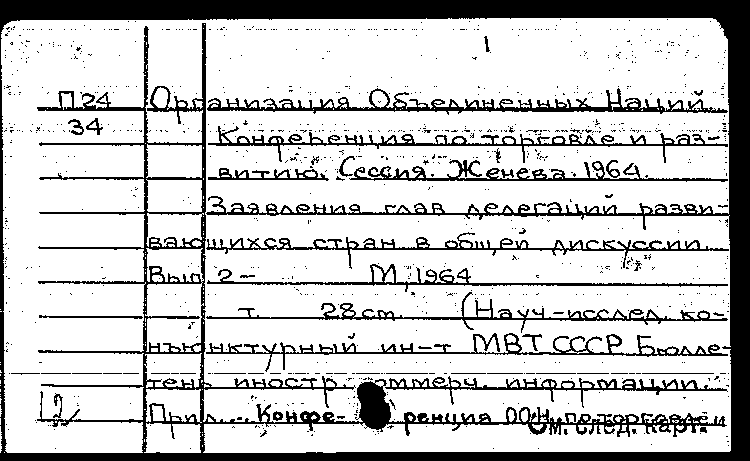 1
П24 Организация Объединенных Наций.
34 Конференция по торговле и раз-
витию. Сессия. Женева. 1964.
Заявления глав делегаций разви-
вающихся стран в общей дискуссии.
Вып. 2- М., 1964
т. 28 cm. (Науч-исслед. ко-
нъюнктурный ин-т МВТ СССР. Бюлле-
тень иностр. коммерч. информации.
12 Прил... Конфе- ренция ООН по торговле и
См. след. карт.